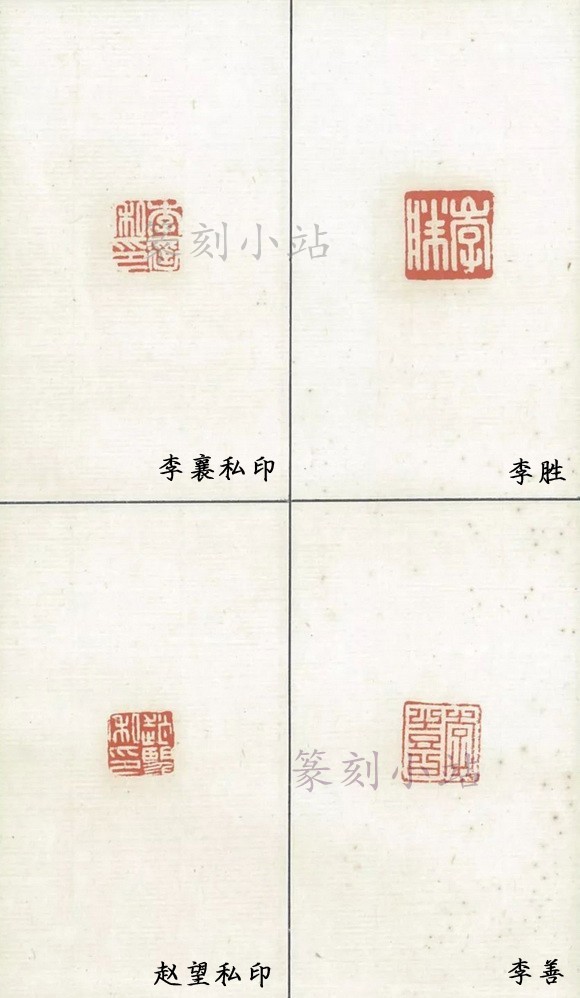 篆刻小站
李襄私印
李胜
篆刻小站
赵望私印
李善